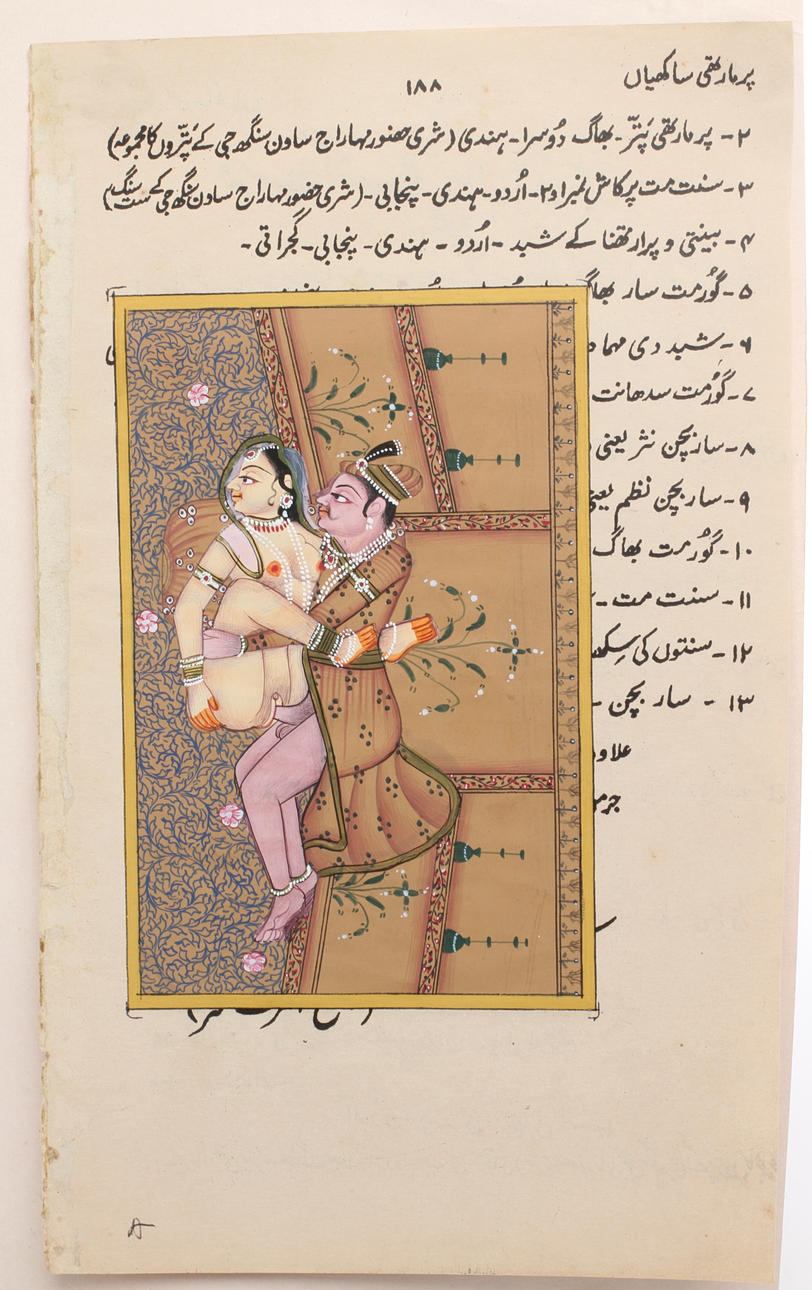 پرمارتھی ساکھیاں
۱۸۸
۲- پرمارتھی پَتر- بھاگ دُوسرا- ہندی (شری حضور مہاراج ساون سنگھ جی کے پتروں کا مجموعہ)
۳- سنت مت پرکاش نمبر ۱و۲- اُردو- ہندی- پنجابی- (شری حضور مہاراج ساون سنگھ جی کے ست سنگ)
۴- بینتی و پرارتھنا کے شبد- اُردو- ہندی- پنجابی- گجراتی-
۵- گورمت سار بھاگ
۶- شبد دی مہما
۷- گورمت سدھانت
۸- سار بچن نثر یعنی
۹- سار بچن نظم یعنی
۱۰- گورمت بھاگ
۱۱- سنت مت-
۱۲- سنتوں کی سکھ
۱۳- سار بچن-